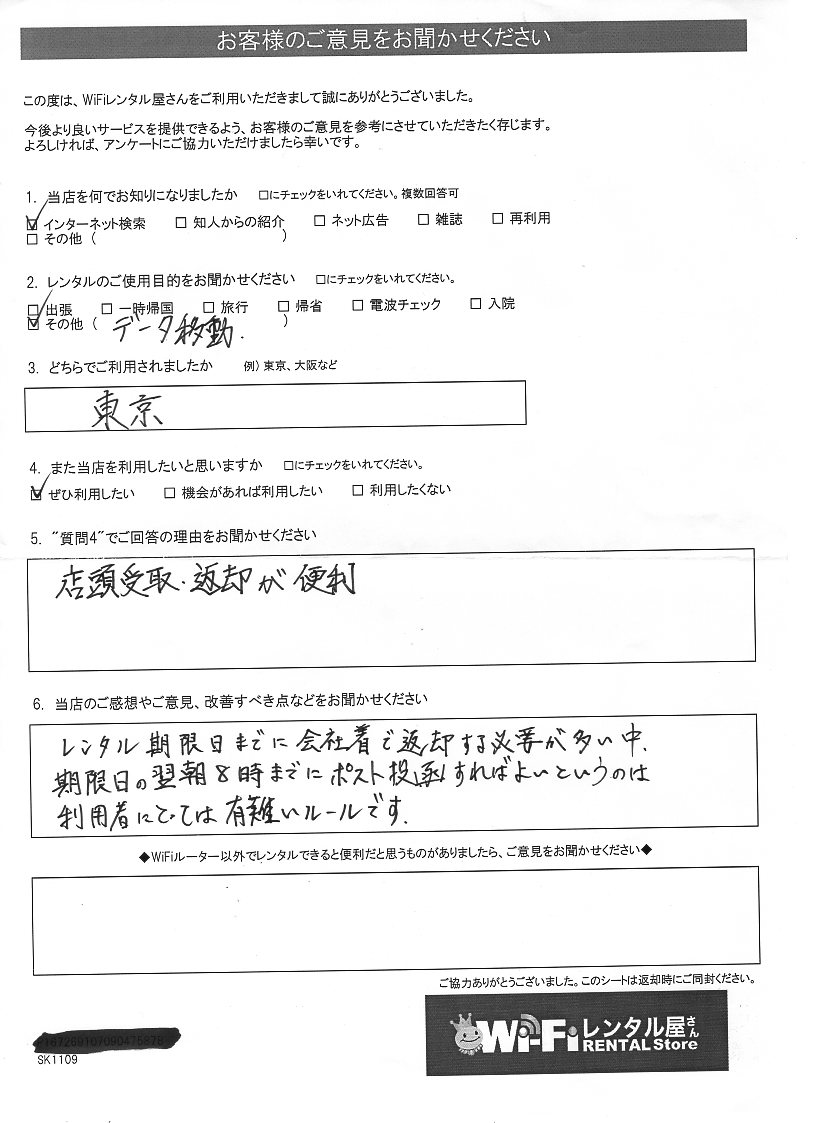 お客様のご意見をお聞かせください
この度は、WiFiレンタル屋さんをご利用いただきまして誠にありがとうございました。
今後より良いサービスを提供できるよう、お客様のご意見を参考にさせていただきたく存じます。
よろしければ、アンケートにご協力いただけましたら幸いです。
1. 当店を何でお知りになりましたか □にチェックをいれてください。複数回答可
☑ インターネット検索 □ 知人からの紹介 □ ネット広告 □ 雑誌 □ 再利用
□ その他 ( )
2. レンタルのご使用目的をお聞かせください □にチェックをいれてください。
□ 出張 □ 一時帰国 □ 旅行 □ 帰省 □ 電波チェック □ 入院
☑ その他 ( データ移動. )
3. どちらでご利用されましたか 例) 東京、大阪など
東京
4. また当店を利用したいと思いますか □にチェックをいれてください。
☑ ぜひ利用したい □ 機会があれば利用したい □ 利用したくない
5. “質問4”でご回答の理由をお聞かせください
店頭受取・返却が便利
6. 当店のご感想やご意見、改善すべき点などをお聞かせください
レンタル期限日までに会社着で返却する必要が多い中、
期限日の翌朝8時までにポスト投函すればよいというのは
利用者にとっては有難いルールです.
◆WiFiルーター以外でレンタルできると便利だと思うものがありましたら、ご意見をお聞かせください◆
ご協力ありがとうございました。このシートは返却時にご同封ください。
Wi-Fi レンタル屋さん
RENTAL Store
SK1109